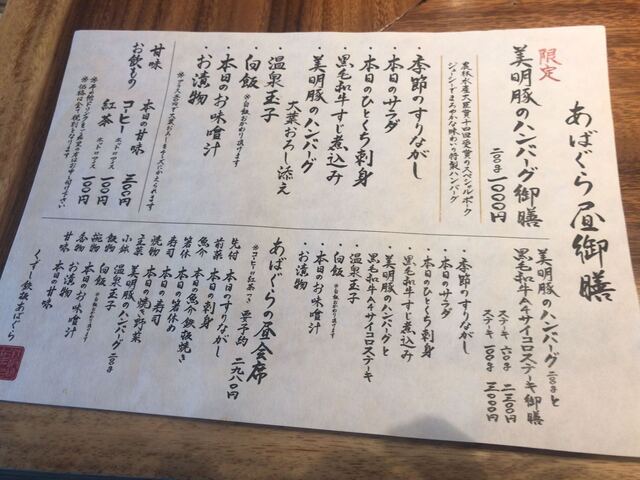 あばぐら昼御膳
限定
美明豚のハンバーグ御膳
二〇〇g 一〇〇〇円
農林水産大臣賞十四回受賞のスペシャルポーク
ジューシーでまろやかな味わいの特製ハンバーグ
・季節のすりながし
・本日のサラダ
・本日のひとくち刺身
・黒毛和牛すじ煮込み
・美明豚のハンバーグ
大葉おろし添え
・温泉玉子
・白飯
・本日のお味噌汁
・お漬物
甘味
本日の甘味 三〇〇円
お飲もの
コーヒー 一〇〇円
紅茶 一〇〇円
美明豚のハンバーグ二〇〇gと
黒毛和牛A4サイコロステーキ御膳
ステーキ 六〇g 二三〇〇円
ステーキ 一〇〇g 三〇〇〇円
・季節のすりながし
・本日のサラダ
・本日のひとくち刺身
・黒毛和牛すじ煮込み
・美明豚のハンバーグと
黒毛和牛A4サイコロステーキ
・温泉玉子
・白飯
・本日のお味噌汁
・お漬物
あばぐらの昼会席
※コーヒー紅茶つき 要予約 二九八〇円
先付 本日のすりながし
前菜 本日の刺身
魚介 本日の魚介鉄板焼き
箸休 本日の箸休め
寿司 本日の寿司
焼物 本日の焼き野菜
主菜 美明豚のハンバーグ二〇〇g
小鉢 温泉玉子
飯物 白飯
椀物 本日のお味噌汁
香物 お漬物
甘味 本日の甘味
くずし鉄板あばぐら